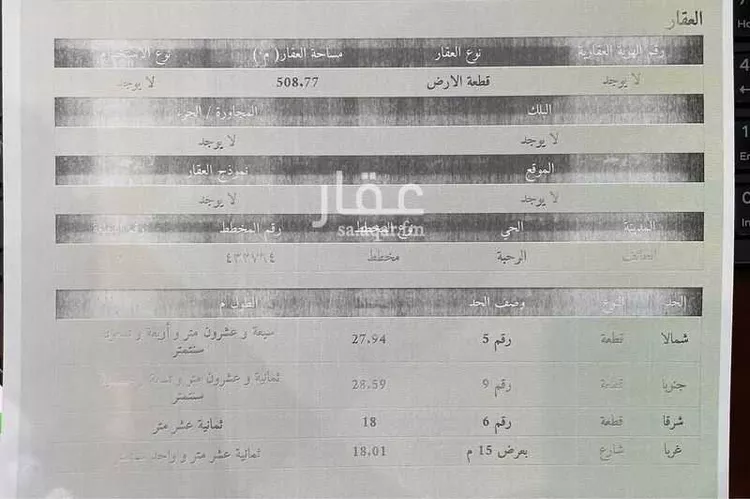 العقار
رقم الهوية العقارية نوع العقار مساحة العقار( م ٢) نوع الاستخدام
لا يوجد قطعة الارض 508.77 لا يوجد
البلك المجاورة / الجزء
لا يوجد لا يوجد
الموقع نموذج العقار
لا يوجد لا يوجد
عقار
sa.aqar.fm
المدينة الحي نوع المخطط رقم المخطط
الطائف الرحبة مخطط
الحد النوع وصف الحد الطول م
شمالا قطعة رقم 5 27.94 سبعة و عشرون متر و أربعة و تسعون
سنتمتر
جنوبا قطعة رقم 9 28.59 ثمانية و عشرون متر و تسعة و
سنتمتر
شرقا قطعة رقم 6 18 ثمانية عشر متر
غربا شارع بعرض 15 م 18.01 ثمانية عشر متر و واحد